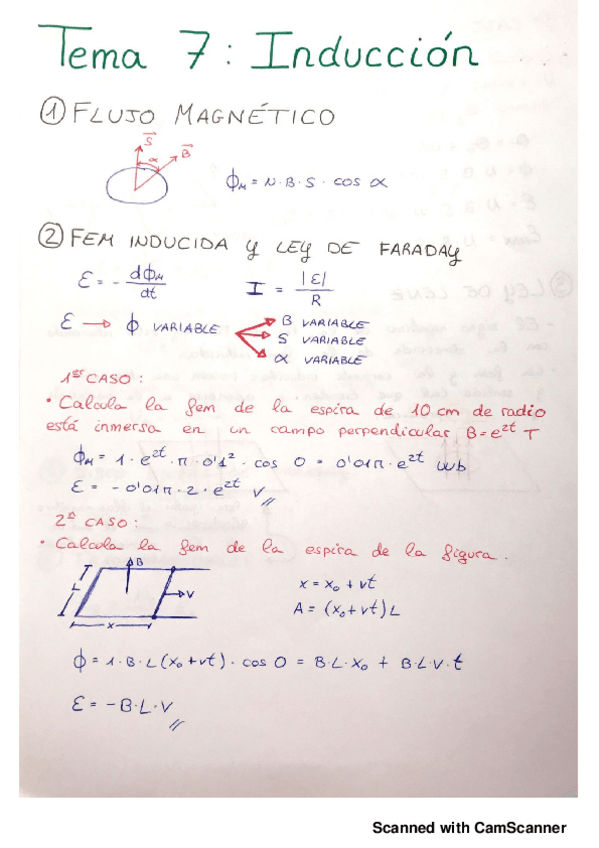 Tema 7: Inducción
① FLUJO MAGNÉTICO
S⃗
α B⃗
ϕM = N·B·S · cos α
② FEM INDUCIDA Y LEY DE FARADAY
ε = - dϕM/dt I = |ε|/R
ε → ϕ VARIABLE
B VARIABLE
S VARIABLE
α VARIABLE
1er CASO:
• Calcula la fem de la espira de 10 cm de radio
está inmersa en un campo perpendicular B=e^2t T
ϕM = 1 · e^2t · π · 0'1² · cos 0 = 0'01π · e^2t wb
ε = - 0'01π · 2 · e^2t V //
2º CASO:
• Calcula la fem de la espira de la figura.
B
L
V
x
x = x₀ + vt
A = (x₀+vt)L
ϕ = 1·B·L(x₀+vt)·cos 0 = B·L·x₀ + B·L·v·t
ε = -B·L·V //
Scanned with CamScanner